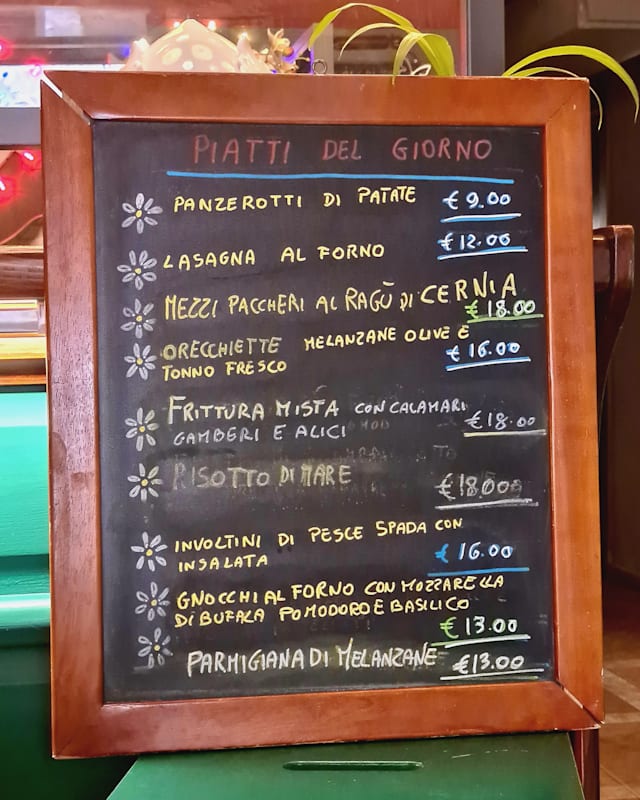 PIATTI DEL GIORNO
PANZEROTTI DI PATATE € 9.00
LASAGNA AL FORNO € 12.00
MEZZI PACCHERI AL RAGÙ DI CERNIA
€ 18.00
ORECCHIETTE MELANZANE OLIVE E
TONNO FRESCO € 16.00
FRITTURA MISTA CON CALAMARI
GAMBERI E ALICI € 18.00
RISOTTO DI MARE € 18.00
INVOLTINI DI PESCE SPADA CON
INSALATA € 16.00
GNOCCHI AL FORNO CON MOZZARELLA
DI BUFALA POMODORO E BASILICO
€ 13.00
PARMIGIANA DI MELANZANE € 13.00